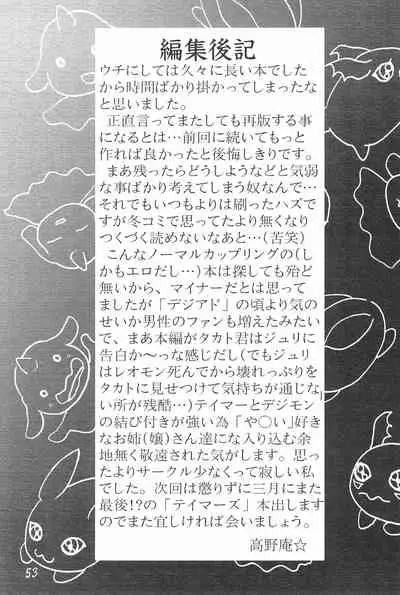 編集後記
ウチにしては久々に長い本でした
から時間ばかり掛かってしまったな
と思いました。
正直言ってまたしても再版する事
になるとは…前回に続いてもっと
作れば良かったと後悔しきりです。
まあ残ったらどうしようなどと気弱
な事ばかり考えてしまう奴なんで…
それでもいつもよりは刷ったハズで
すが冬コミで思ってたより無くなり
つくづく読めないなあと…(苦笑)
こんなノーマルカップリングの(し
かもエロだし…)本は探しても殆ど
無いから、マイナーだとは思って
ましたが「デジアド」の頃より気の
せいか男性のファンも増えたみたい
で、まあ本編がタカト君はジュリに
告白か〜っな感じだし(でもジュリ
はレオモン死んでから壊れっぷりを
タカトに見せつけて気持ちが通じな
い所が残酷…)テイマーとデジモン
の結び付きが強い為「や〇い」好き
なお姉(嬢)さん達にな入り込む余
地無く敬遠された気がします。思っ
たよりサークル少なくって寂しい私
でした。次回は懲りずに三月にまた
最後!?の「テイマーズ」本出します
のでまた宜しければ会いましょう。
高野庵☆
53